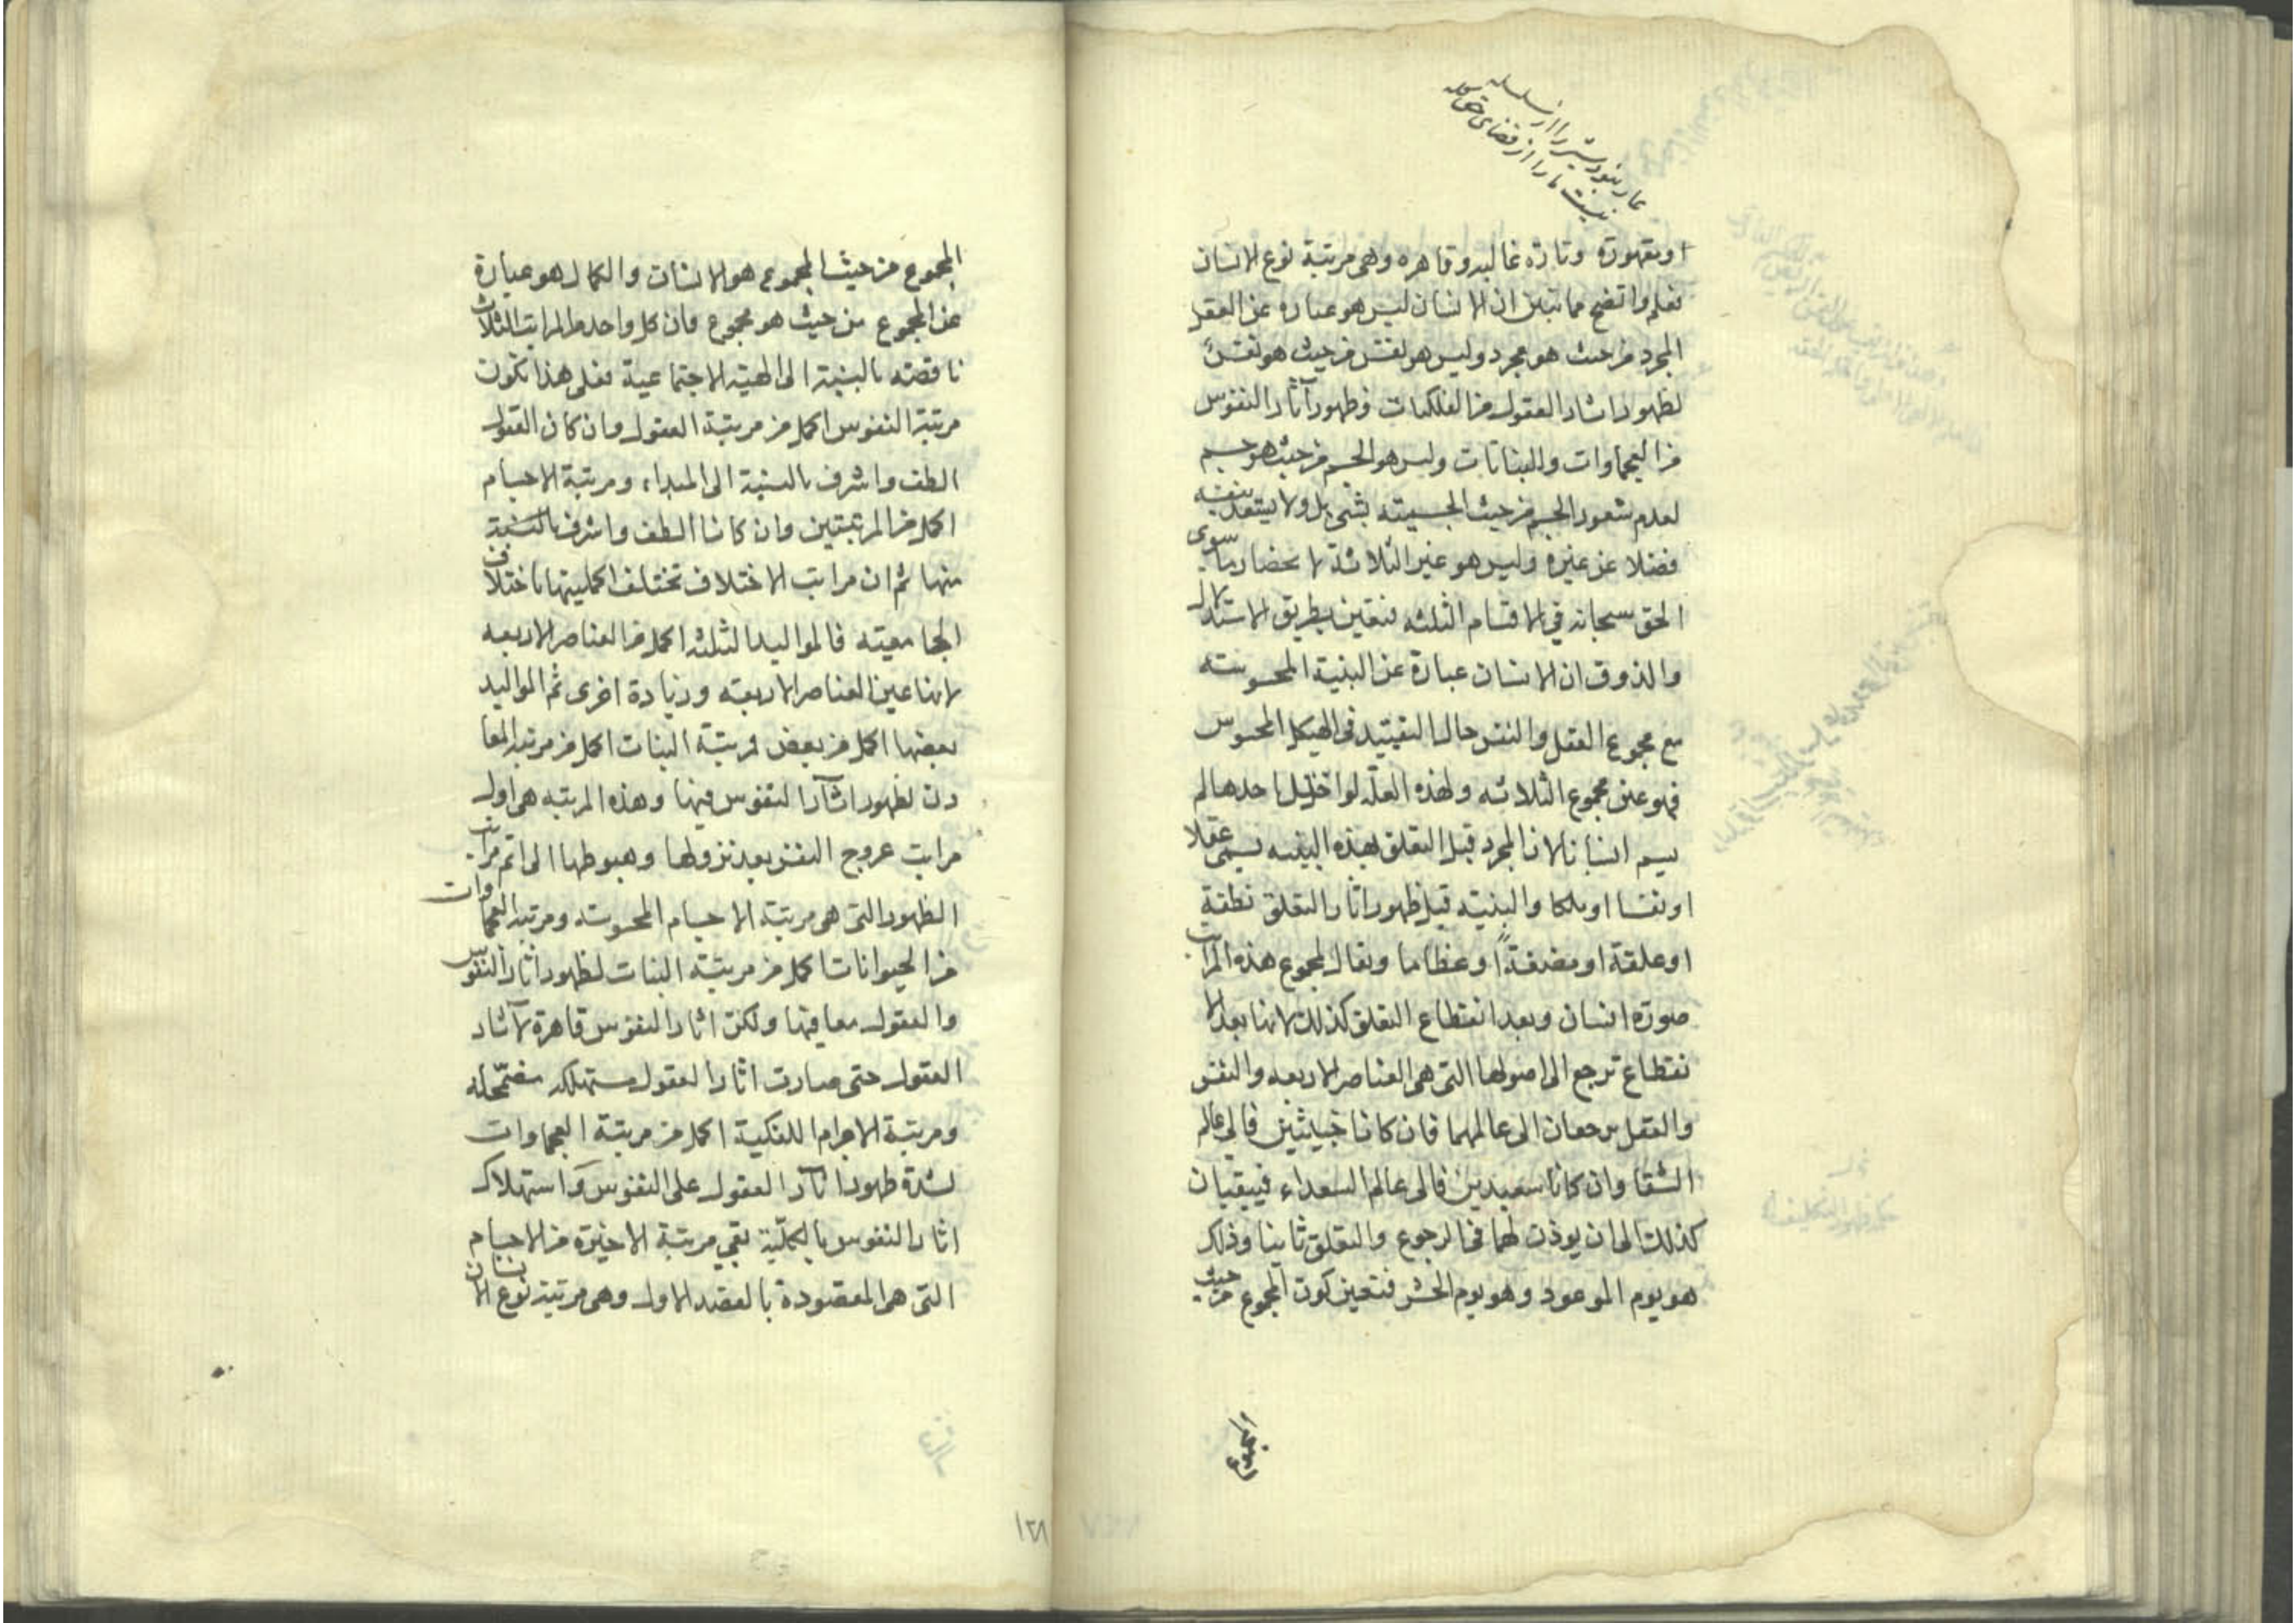 عار نبود شیر را از سلسله
نیست ما را از قضای حق کله
او مقهورة وتارة غالبه وقاهره وهى مرتبة نوع الانسان
فعلم واتضح مما تبين ان الانسان ليس هو عبارة عن العقل
المجرد من حيث هو مجرد وليس هو لنفس من حيث هو نفس
لظهور اثار العقول من الفلكيات وظهور آثار النفوس
من العجماوات والنباتات وليس هو الجسم من حيث هو جسم
لعدم شعور الجسم من حيث الجسمية بشئ بل ولا بنفسه
فضلا عن غيره وليس هو غير الثلاثة لانحصار ما سوى
الحق سبحانه في الاقسام الثلثه فتعين بطريق الاستدلال
والذوق ان الانسان عبارة عن البنية المحسوسته
مع مجموع العقل والنفس حال التقييد فى الهيكل المحسوس
فهو عين مجموع الثلاثه ولهذه العلة لو اختل احدها لم
يسم انسانا لان المجرد قبل التعلق بهذه البنيه يسمى عقلا
او نفسا او ملكا والبنيته قبل ظهور اثار التعلق نطفة
او علقة او مضغةً او عظاما ويقال لمجموع هذه المراتب
صورة انسان وبعد انقطاع التعلق كذلك لانها بعد الا
نقطاع ترجع الى اصولها التى هى العناصر الاربعه والنفس
والعقل يرجعان الى عالمهما فان كانا خبيثين فالى عالم
الشقا وان كانا سعيدين فالى عالم السعداء فيبقيان
كذلك الى ان يوذن لهما فى الرجوع والتعلق ثانيا وذلك
هو يوم الموعود وهو يوم الحشر فتعين كون المجموع من حيث
المجموع
المجموع من حيث المجموع هو الانسان والكمال هو عبارة
عن المجموع من حيث هو مجموع فان كل واحد من المراتب الثلاث
ناقصته بالنسبة الى الهيئة الاجتماعية فعلى هذا تكون
مرتبة النفوس اكمل من مرتبة العقول وان كان العقول
الطف واشرف بالنسبة الى المبداء ومرتبة الاجسام
اكمل من المرتبتين وان كانا الطف واشرف بالنسبة
منها ثم ان مراتب الاختلاف تختلف اكمليتها باختلاف
الجامعيته فالمواليد الثلثه اكمل من العناصر الاربعه
لانها عين العناصر الاربعته وزيادة اخرى ثم المواليد
بعضها اكمل من بعض فمرتبة النبات اكمل من مرتبه المعا
دن لظهور اثآر النفوس فيها وهذه المرتبه هى اول
مراتب عروج النفس بعد نزولها وهبوطها الى اتم مراتب
الظهور التى هى مرتبة الاجسام المحسوسته ومرتبه العجماوات
من الحيوانات اكمل من مرتبة النبات لظهور اثار النفوس
والعقول معا فيها ولكن اثار النفوس قاهرة لآثار
العقول حتى صارت اثار العقول مستهلكه مضمحله
ومرتبة الاجرام الفلكية اكمل من مرتبة العجماوات
لشدة ظهور اثآر العقول على النفوس واستهلاك
اثار النفوس بالكليّة بقي مرتبة الاخيرة من الاجسام
التى هى المقصودة بالقصد الاول وهى مرتبة نوع الانسان
١٣٨